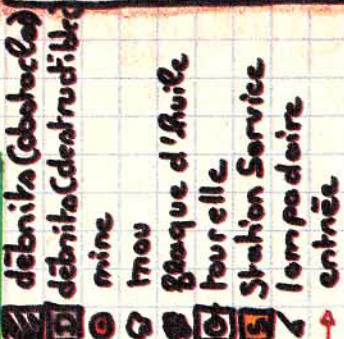 débrits (obstacles)
D débrits (destructibles
mine
trou
flaque d'huile
tourelle
S Station Service
lampadaire
entrée